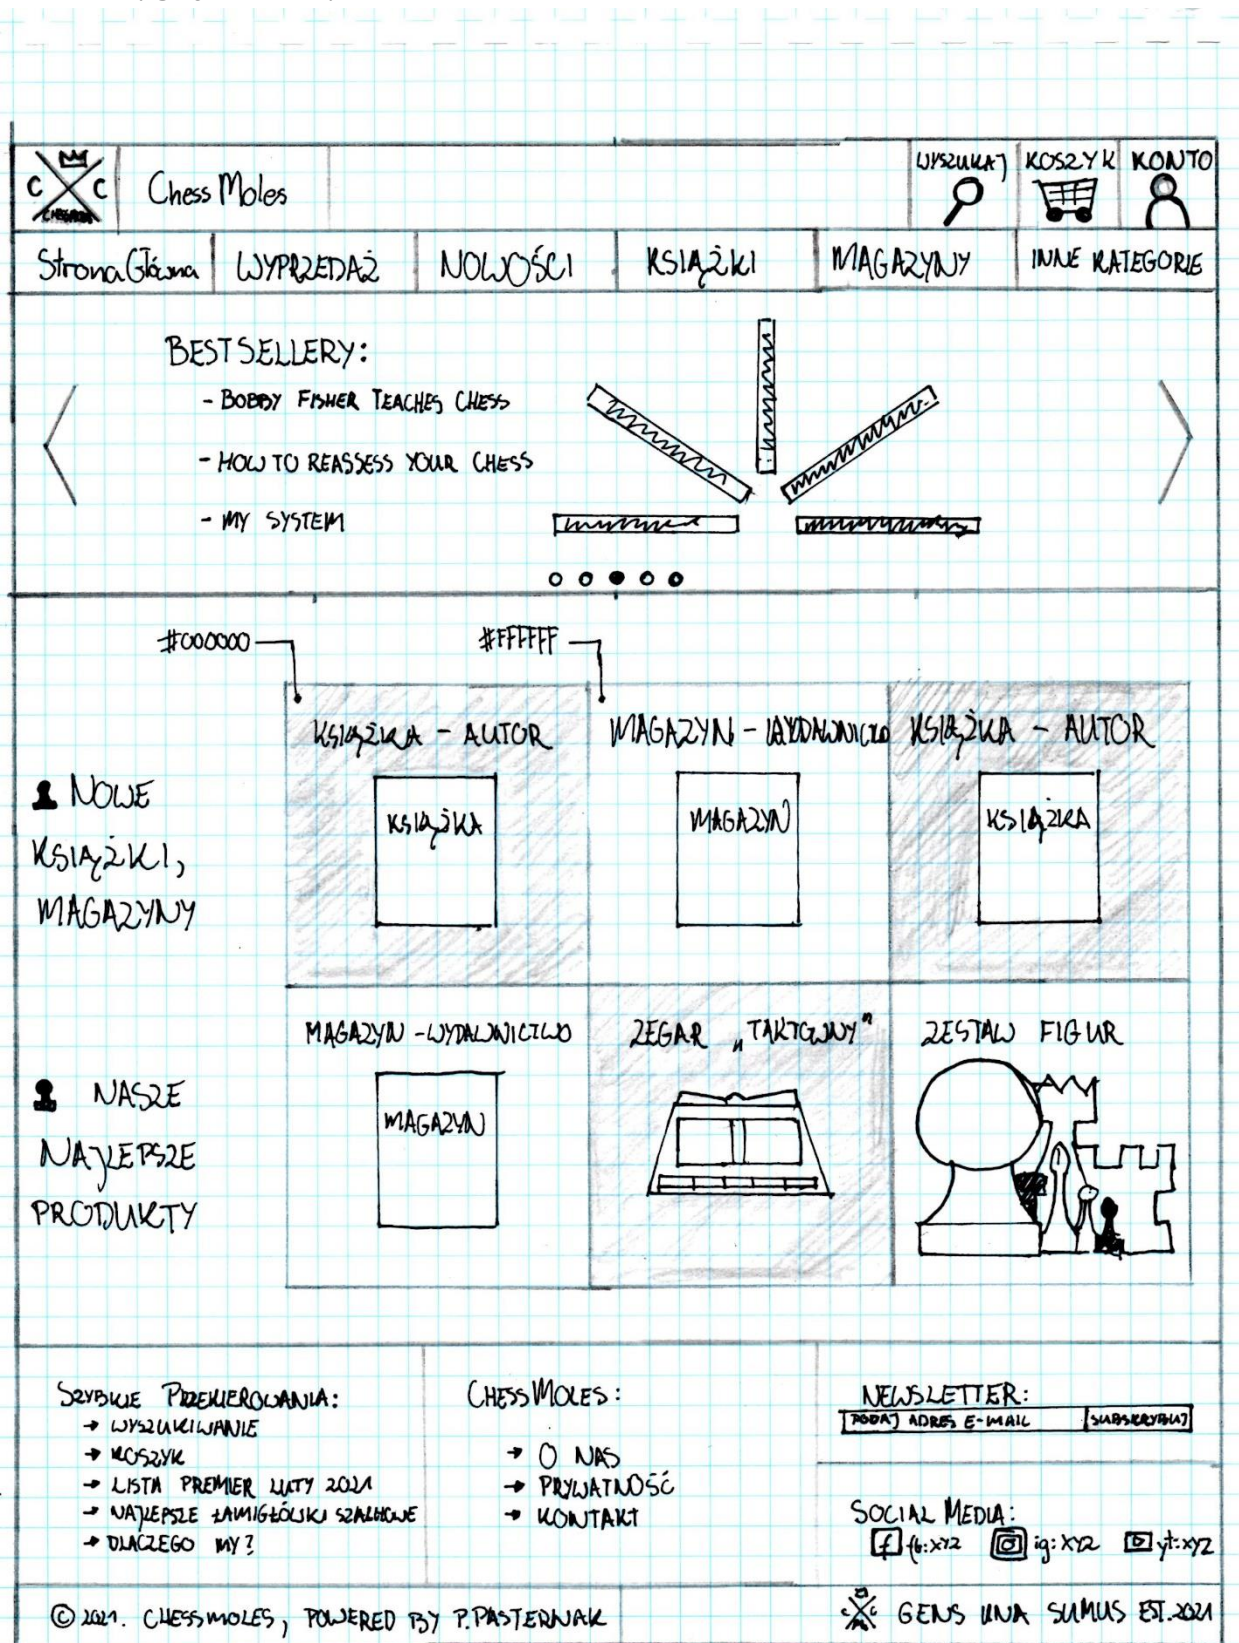 C C
Chess Moles
WYSZUKAJ
KOSZYK
KONTO
Strona Główna
WYPRZEDAŻ
NOWOŚCI
KSIĄŻKI
MAGAZYNY
INNE KATEGORIE
BESTSELLERY:
- BOBBY FISHER TEACHES CHESS
- HOW TO REASSESS YOUR CHESS
- MY SYSTEM
#000000
#FFFFFF
KSIĄŻKA - AUTOR
MAGAZYN - WYDAWNICTWO
KSIĄŻKA - AUTOR
NOWE
KSIĄŻKI,
MAGAZYNY
KSIĄŻKA
MAGAZYN
KSIĄŻKA
MAGAZYN - WYDAWNICTWO
ZEGAR „TAKTOWNY"
ZESTAW FIGUR
NASZE
NAJLEPSZE
PRODUKTY
MAGAZYN
SZYBKIE PRZEKIEROWANIA:
→ WYSZUKIWANIE
→ KOSZYK
→ LISTA PREMIER LUTY 2021
→ NAJLEPSZE ŁAMIGŁÓWKI SZACHOWE
→ DLACZEGO MY?
CHESSMOLES:
→ O NAS
→ PRYWATNOŚĆ
→ KONTAKT
NEWSLETTER:
PODAJ ADRES E-MAIL
SUBSKRYBUJ
SOCIAL MEDIA:
f fb:XYZ
ig:XYZ
yt:XYZ
© 2021. CHESSMOLES, POWERED BY P.PASTERNAK
C C GENS UNA SUMUS EST.2021